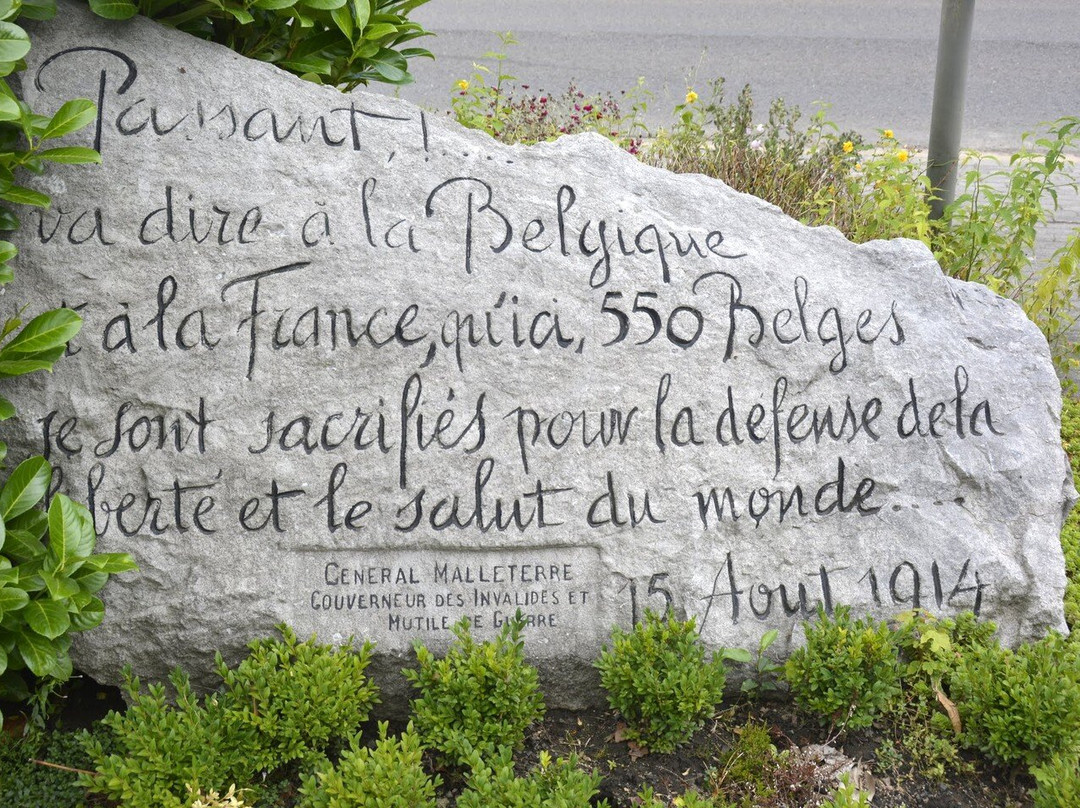 Passant,!.....
va dire à la Belgique
et à la France, qu'ici, 550 Belges
se sont sacrifiés pour la défense de la
liberté et le salut du monde.....
GENERAL MALLETERRE
GOUVERNEUR DES INVALIDES ET
MUTILE DE GUERRE
15 Aout 1914